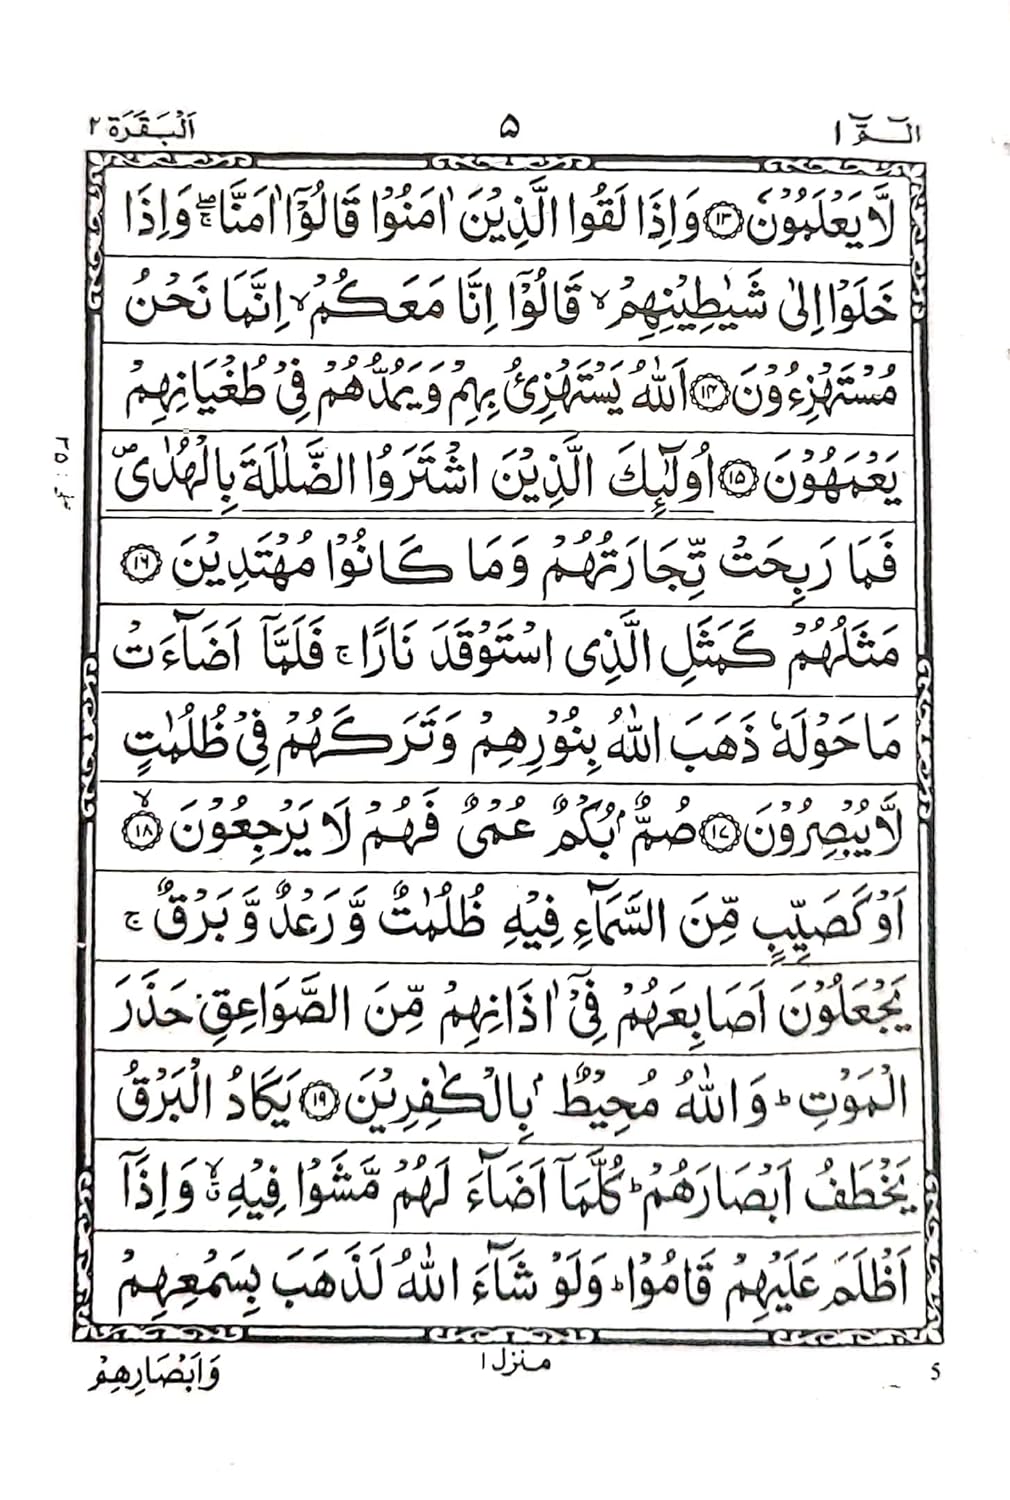 الٓمّٓ ١ ۵ اَلْبَقَرَة ٢
لَّا يَعْلَمُوْنَ ﴿۱۳﴾ وَاِذَا لَقُوا الَّذِيْنَ اٰمَنُوْا قَالُوْۤا اٰمَنَّا ۖۚ وَاِذَا
خَلَوْا اِلٰى شَيٰطِيْنِهِمْ ۙ قَالُوْۤا اِنَّا مَعَكُمْ ۙ اِنَّمَا نَحْنُ
مُسْتَهْزِءُوْنَ ﴿۱۴﴾ اَللّٰهُ يَسْتَهْزِئُ بِهِمْ وَيَمُدُّهُمْ فِىْ طُغْيَانِهِمْ
يَعْمَهُوْنَ ﴿۱۵﴾ اُولٰٓئِكَ الَّذِيْنَ اشْتَرَوُا الضَّلٰلَةَ بِالْهُدٰى ۪
فَمَا رَبِحَتْ تِّجَارَتُهُمْ وَمَا كَانُوْا مُهْتَدِيْنَ ﴿۱۶﴾
مَثَلُهُمْ كَمَثَلِ الَّذِى اسْتَوْقَدَ نَارًا ۚ فَلَمَّاۤ اَضَآءَتْ
مَا حَوْلَهٗ ذَهَبَ اللّٰهُ بِنُوْرِهِمْ وَتَرَكَهُمْ فِىْ ظُلُمٰتٍ
لَّا يُبْصِرُوْنَ ﴿۱۷﴾ صُمٌّۢ بُكْمٌ عُمْىٌ فَهُمْ لَا يَرْجِعُوْنَ ۙ﴿۱۸﴾
اَوْ كَصَيِّبٍ مِّنَ السَّمَآءِ فِيْهِ ظُلُمٰتٌ وَّ رَعْدٌ وَّ بَرْقٌ ۚ
يَجْعَلُوْنَ اَصَابِعَهُمْ فِىْۤ اٰذَانِهِمْ مِّنَ الصَّوَاعِقِ حَذَرَ
الْمَوْتِ ؕ وَاللّٰهُ مُحِيْطٌۢ بِالْكٰفِرِيْنَ ﴿۱۹﴾ يَكَادُ الْبَرْقُ
يَخْطَفُ اَبْصَارَهُمْ ؕ كُلَّمَاۤ اَضَآءَ لَهُمْ مَّشَوْا فِيْهِ ۙ وَاِذَاۤ
اَظْلَمَ عَلَيْهِمْ قَامُوْا ؕ وَلَوْ شَآءَ اللّٰهُ لَذَهَبَ بِسَمْعِهِمْ
منزل ۱
وَاَبْصَارِهِمْ
5